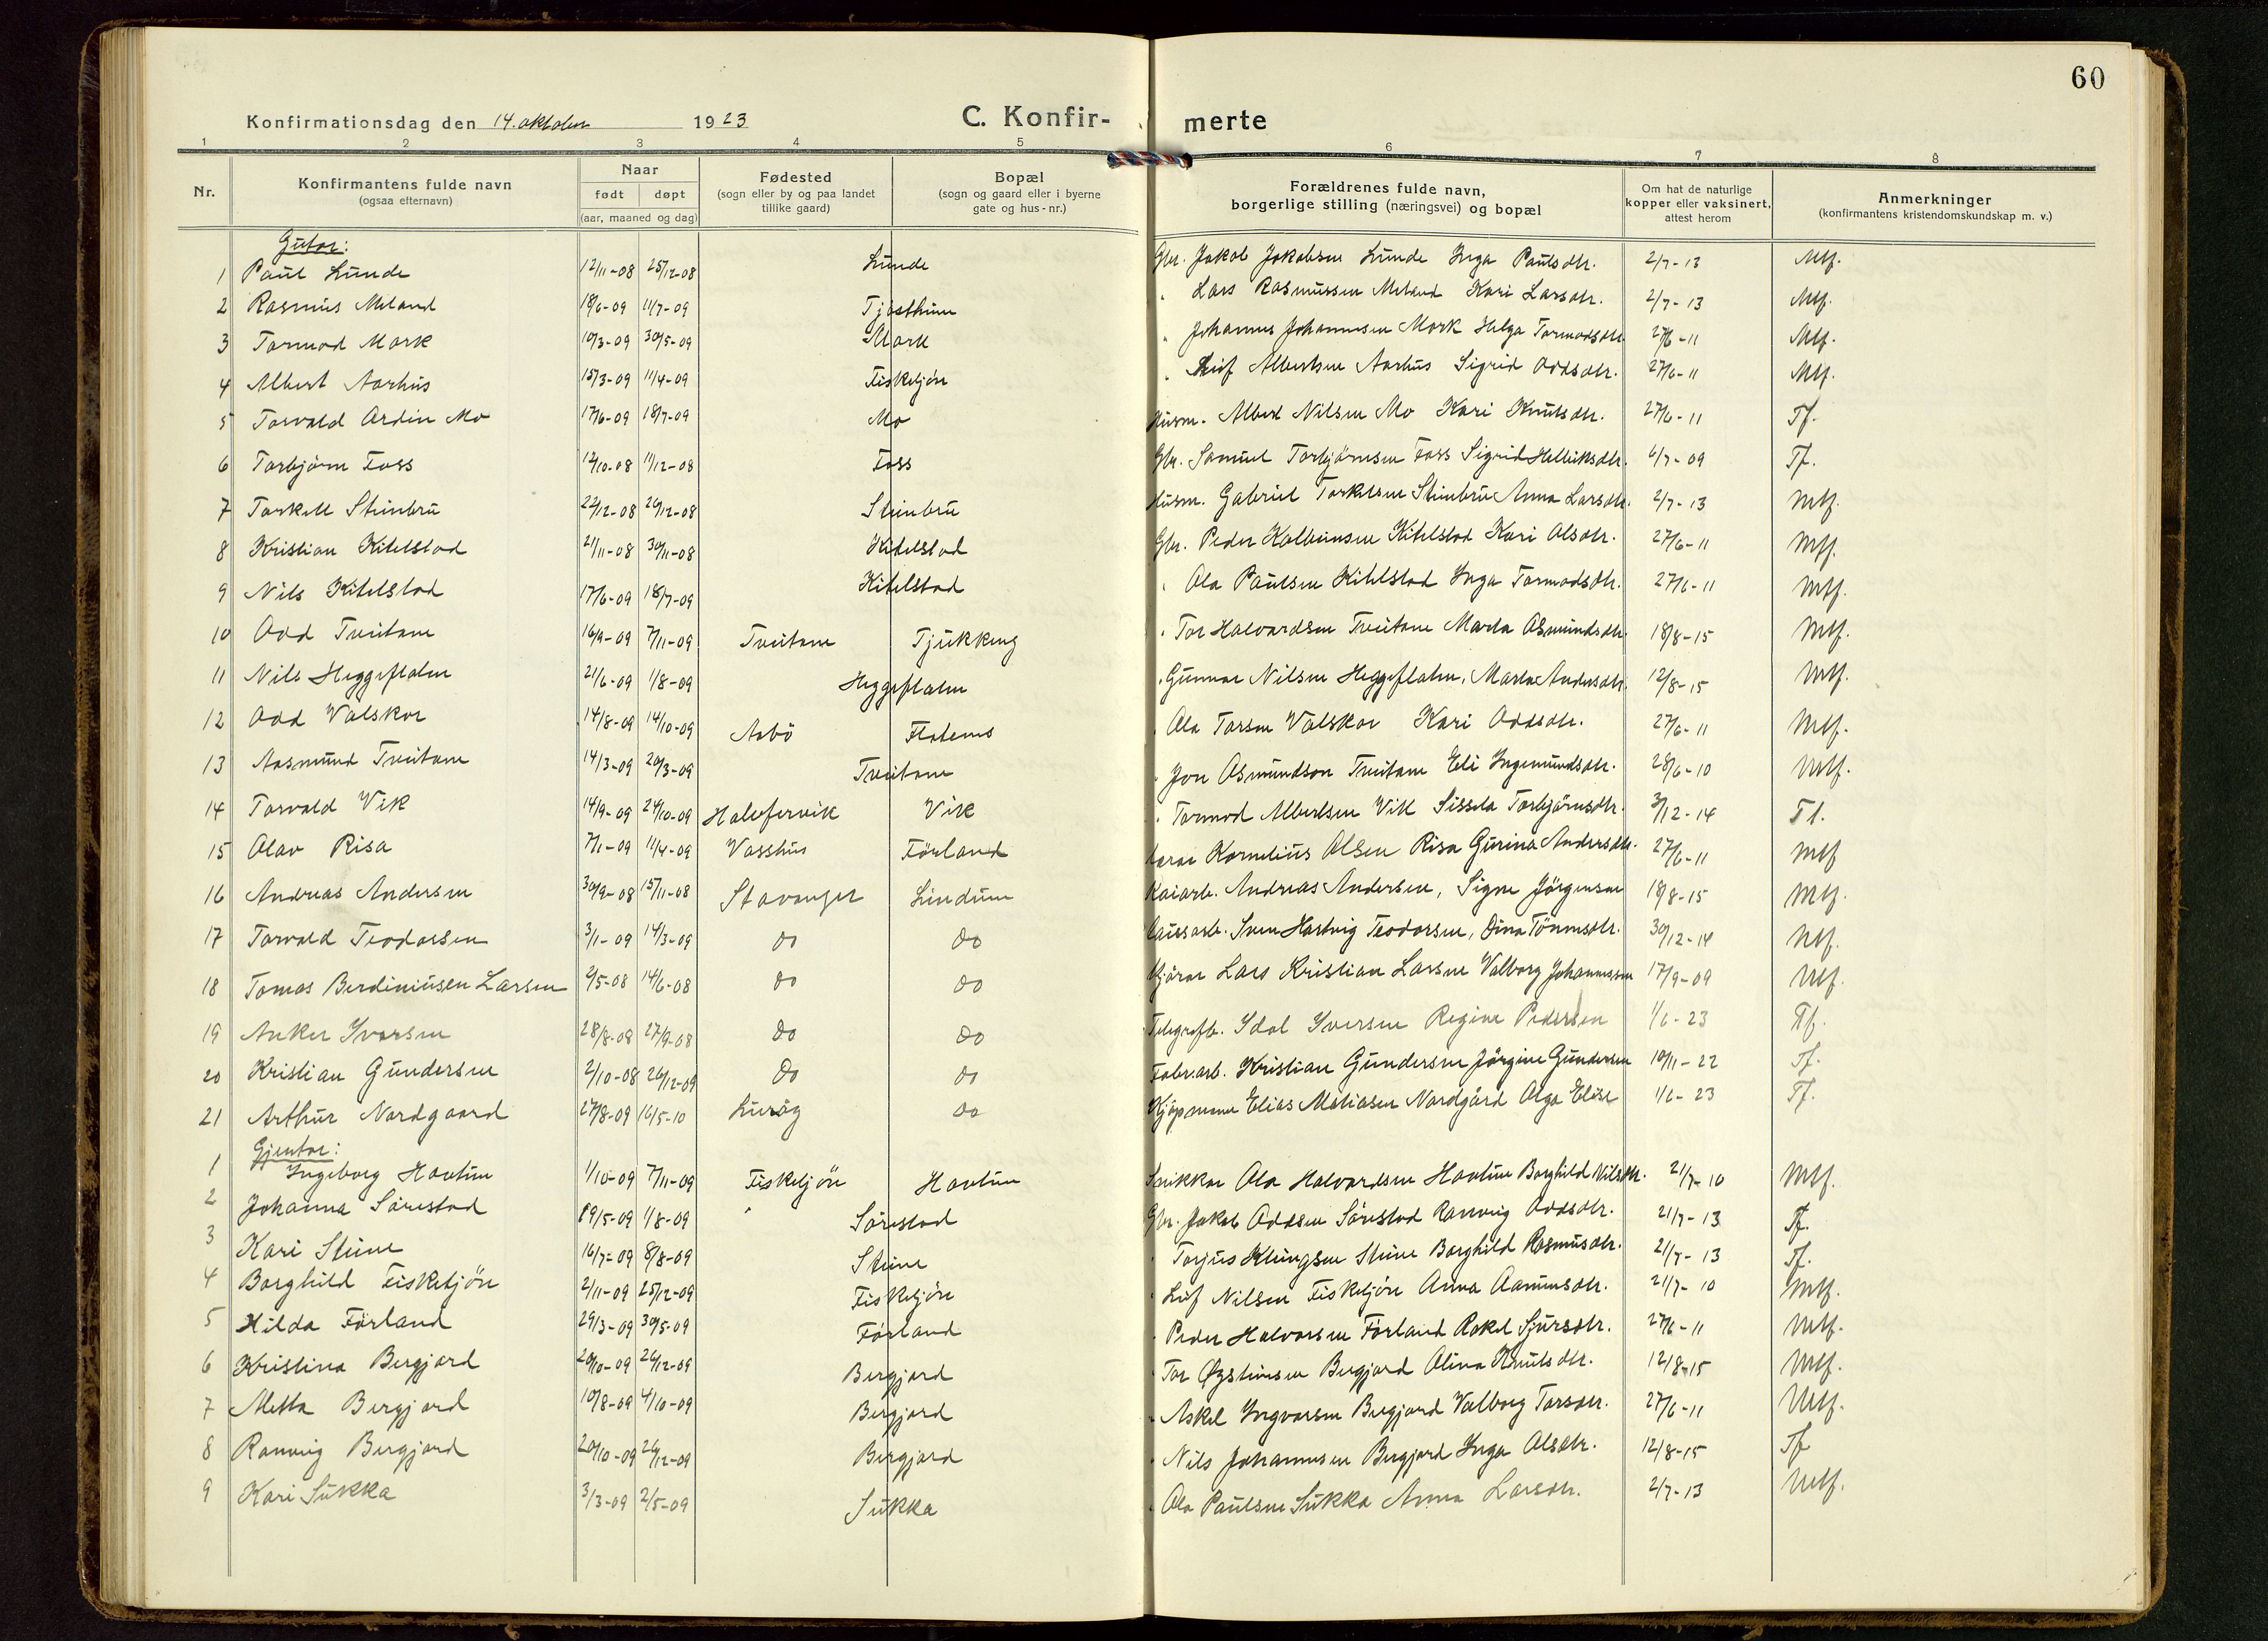 60
Konfirmationsdag den 14. oktober 1923
C. Konfir- merte
1 2 3 4 5 6 7 8
Nr. Konfirmantens fulde navn (ogsaa efternavn) Naar født døpt (aar, maaned og dag) Fødested (sogn eller by og paa landet tillike gaard) Bopæl (sogn og gaard eller i byerne gate og hus-nr.) Forældrenes fulde navn, borgerlige stilling (næringsvei) og bopæl Om hat de naturlige kopper eller vaksinert, attest herom Anmerkninger (konfirmantens kristendomskundskap m. v.)
Gutar:
1 Paul Lunde 12/11-08 25/12-08 Lunde Gbr. Jakob Jakobsen Lunde Inga Paulsdtr. 2/7-13 Mtf.
2 Rasmus Meland 18/6-09 11/7-09 Tjøstheim " Lars Rasmussen Meland Kari Larsdtr. 2/7-13 Mtf.
3 Tormod Mork 10/3-09 30/5-09 Mork " Johannes Johannesen Mork Helga Tormodsdtr. 27/6-11 Mtf.
4 Albert Aarhus 15/3-09 11/4-09 Fisketjön " Leif Albertsen Aarhus Sigrid Oddsdtr. 27/6-11 Mtf.
5 Torvald Ordin Mo 17/6-09 18/7-09 Mo Husm. Albert Nilsen Mo Kari Knutsdtr. 27/6-11 Tf.
6 Torbjörn Foss 12/10-08 11/12-08 Foss Gbr. Samuel Torbjörnsen Foss Sigrid Helleiksdtr. 6/7-09 Tf.
7 Torkell Steinbru 22/12-08 26/12-08 Steinbru Husm. Gabriel Torkelsen Steinbru Anna Larsdtr. 2/7-13 Mtf.
8 Kristian Kitelstad 21/11-08 30/11-08 Kitelstad Gbr. Peder Kolbeinsen Kitelstad Kari Olsdtr. 27/6-11 Mtf.
9 Nils Kitelstad 17/6-09 18/7-09 Kitelstad " Ola Paulsen Kitelstad Inga Tormodsdtr. 27/6-11 Mtf.
10 Odd Tveitane 16/9-09 7/11-09 Tveitane Tjukkeng " Tor Halvardsen Tveitane Marta Osmundsdtr. 18/8-15 Mtf.
11 Nils Heggeflaten 21/6-09 1/8-09 Heggeflaten " Gunnar Nilsen Heggeflaten, Marta Andersdtr. 12/8-15 Mtf.
12 Odd Valskor 14/8-09 14/10-09 Aabö Flatenes " Ola Torsen Valskor Kari Oddsdtr. 27/6-11 Mtf.
13 Aasmund Tveitane 14/3-09 20/3-09 Tveitane " Jon Osmundson Tveitane Eli Ingemundsdtr. 28/6-10 Mtf.
14 Torvald Vik 14/9-09 24/10-09 Halvfarvik Vik " Tormod Albertsen Vik Sissela Torbjörnsdtr. 3/12-14 Tf.
15 Olav Risa 7/1-09 11/4-09 Vasshus Förland Kornelius Olsen Risa Gurina Andersdtr. 27/6-11 Mtf
16 Andreas Andersen 30/9-08 15/11-08 Stavanger Lindum Kaiarb. Andreas Andersen, Signe Jörgensen 18/8-15 Mtf.
17 Torvald Teodorsen 3/1-09 14/3-09 do do Sven Hartvig Teodorsen, Dina Tönnesdtr. 30/12-14 Mtf.
18 Tomas Berdiniusen Larsen 2/5-08 14/6-08 do do Lars Kristian Larsen Valborg Johannessen 17/9-09 Mtf.
19 Anker Ivarsen 28/8-08 27/9-08 do do Telegrafb. Idol Iversen Regine Pedersen 1/6-23 Tf.
20 Kristian Gundersen 2/10-08 26/12-09 do do Fabr.arb. Kristian Gundersen Jörgine Gundersen 10/11-22 Tf.
21 Arthur Nordgaard 27/8-09 16/5-10 do Kjöpmann Elias Matiasen Nordgård Olga Elise 1/6-23 Tf.
Gjentor:
1 Ingeborg Hovtun 1/10-09 7/11-09 Fisketjön Hovtun Snikkar Ola Halvardsen Hovtun Borghild Nilsdtr. 21/7-10 Mtf.
2 Johanna Sörestad 19/5-09 1/8-09 " Sörestad Gbr. Jakob Oddsen Sörestad Ranveig Oddsdtr. 21/7-13 Tf.
3 Kari Steine 16/7-09 8/8-09 Steine " Torjus Klungsen Steine Borghild Rasmusdtr. 21/7-13 Tf.
4 Borghild Fisketjön 2/11-09 25/12-09 Fisketjön " Leif Nilsen Fisketjön Anna Aamunsdtr. 21/7-10 Mtf.
5 Hilda Förland 29/3-09 30/5-09 Förland " Peder Halvorsen Förland Rakel Sjursdtr. 27/6-11 Mtf.
6 Kristina Bergjord 20/10-09 26/12-09 Bergjord " Tor Øysteinsen Bergjord Olina Knutsdtr. 12/8-15 Mtf.
7 Metta Bergjord 10/8-09 4/10-09 Bergjord " Askel Ingvarsen Bergjord Valborg Torsdtr. 27/6-11 Mtf.
8 Ranveig Bergjord 20/10-09 26/12-09 Bergjord " Nils Johannesen Bergjord Inga Olsdtr. 12/8-15 Tf
9 Kari Sukka 3/3-09 2/5-09 Sukka " Ola Paulsen Sukka Anna Larsdtr. 2/7-13 Mtf.